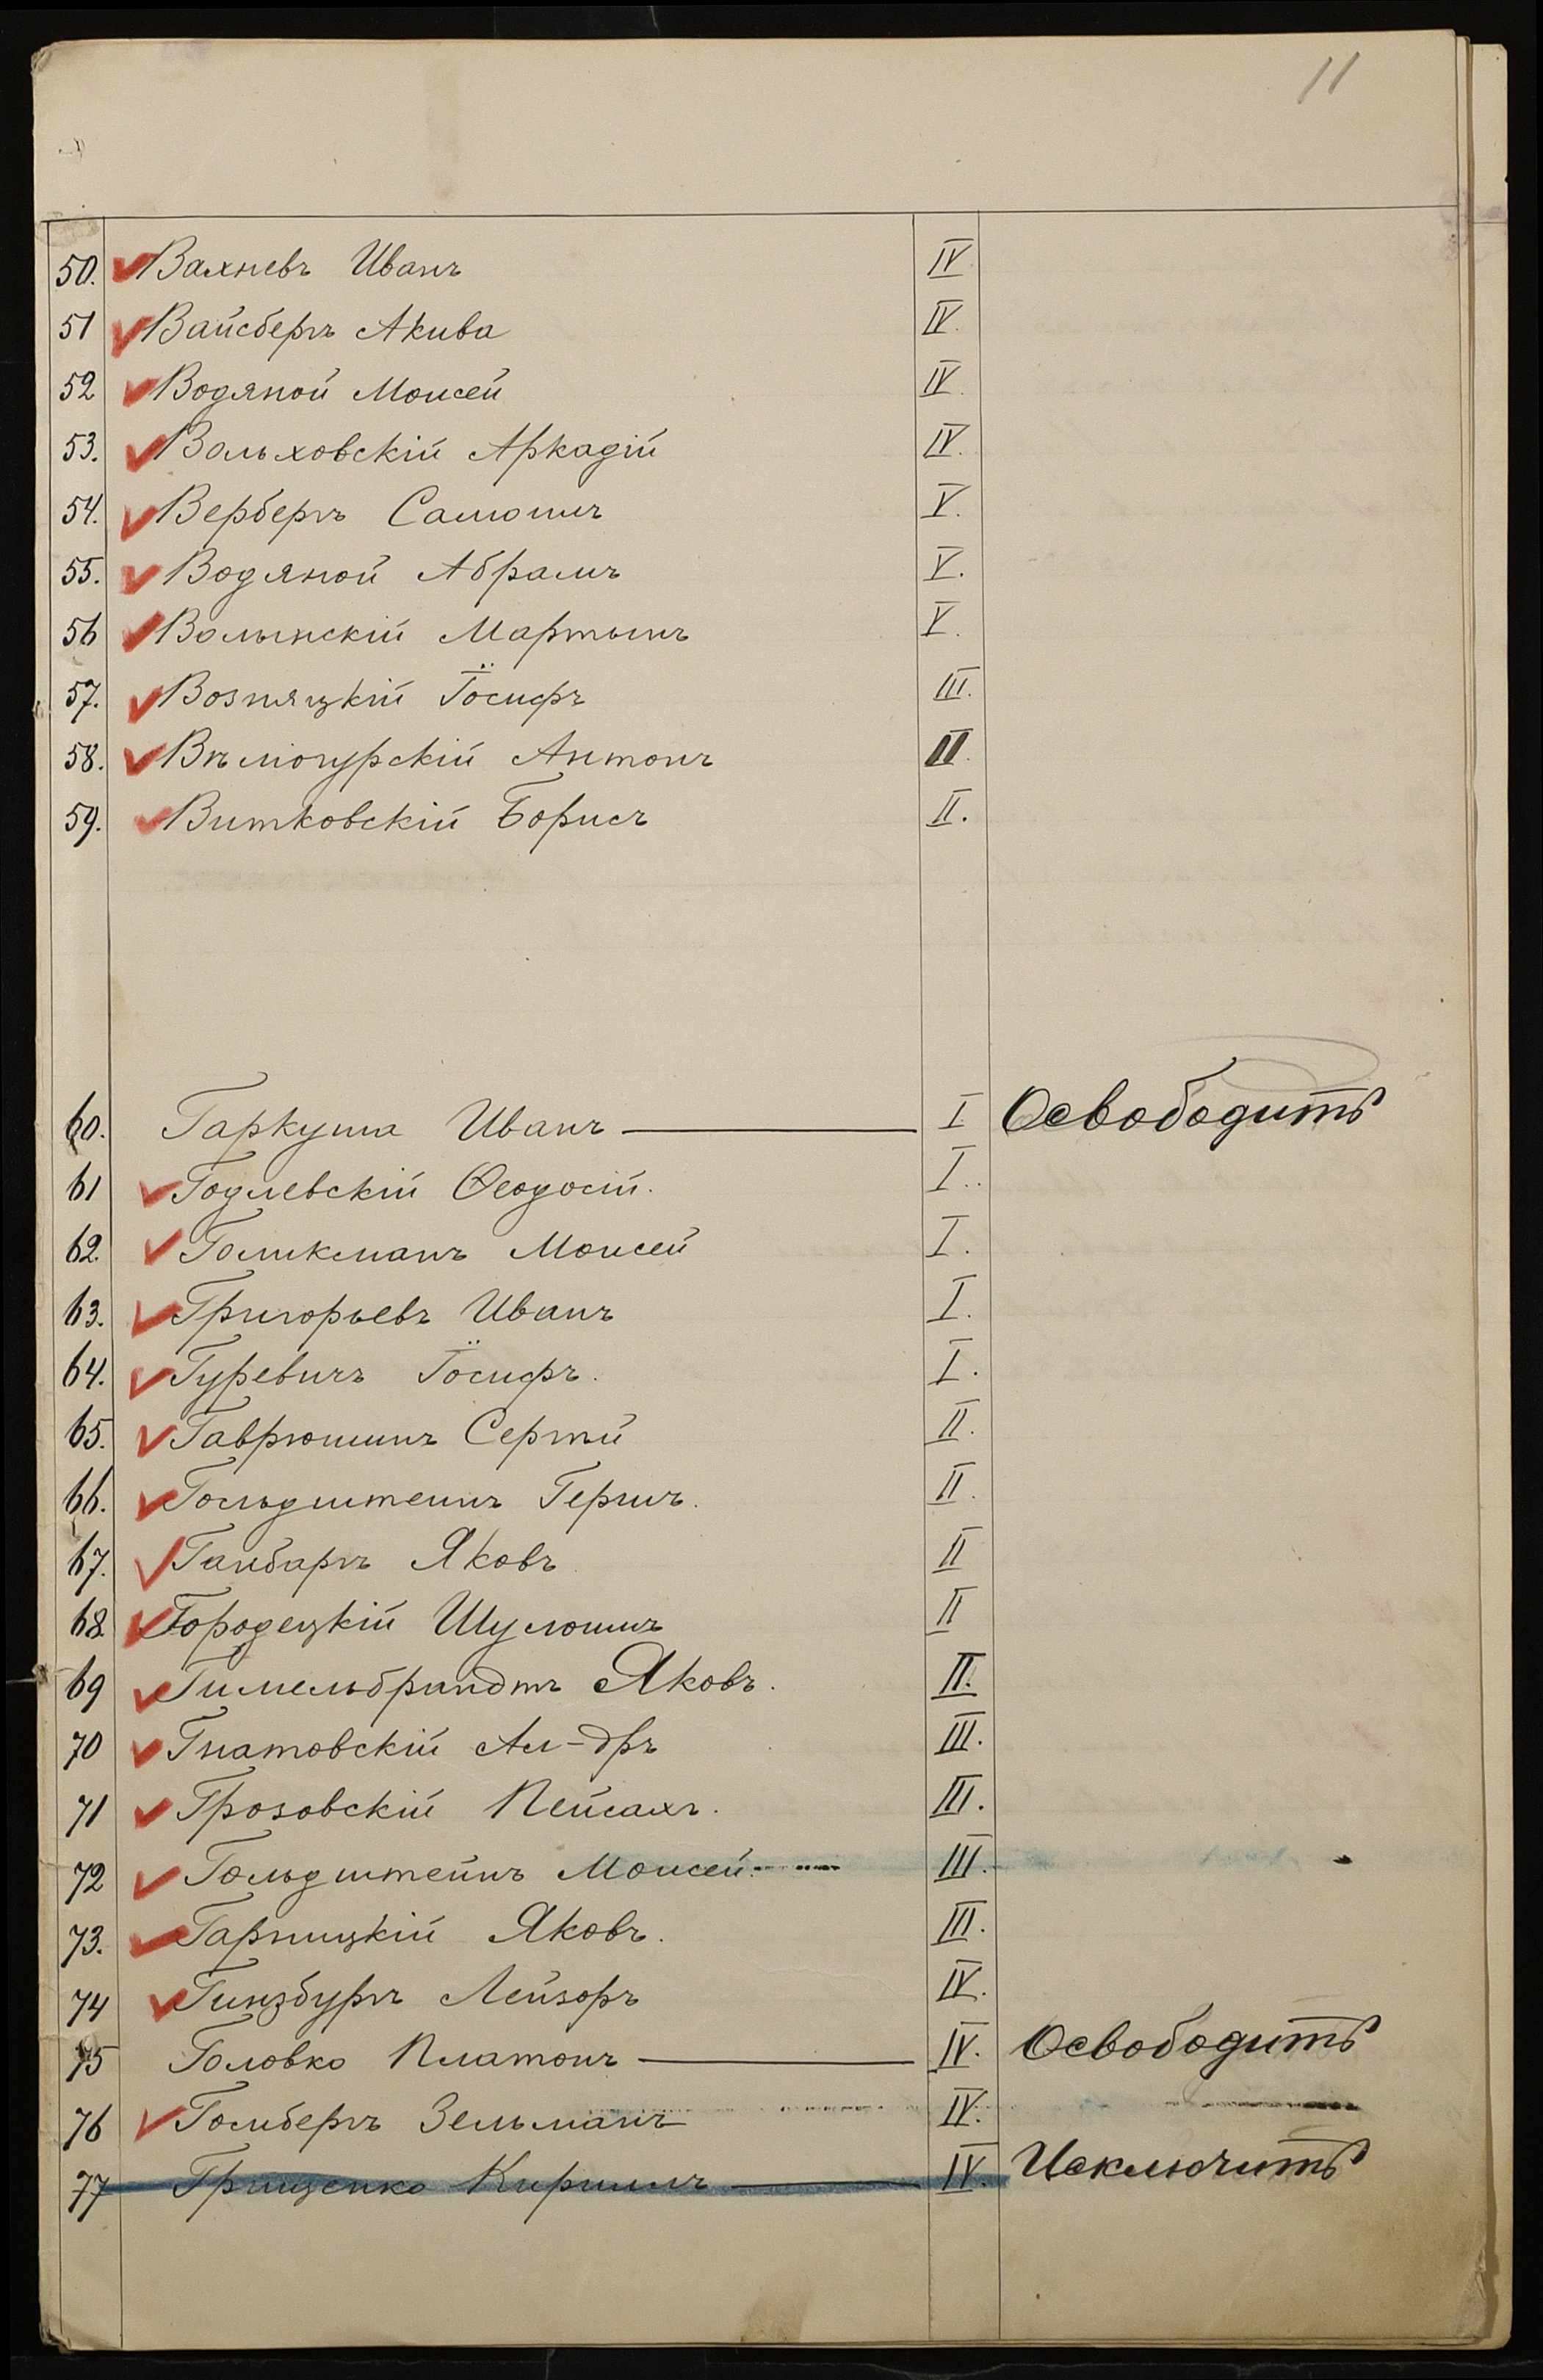 11
50. Вахневъ Иванъ IV
51 Вайсбергъ Акива IV.
52 Водяной Моисей IV.
53. Вольховскій Аркадій IV.
54. Вербергъ Самюилъ V.
55. Водяной Абрамъ V.
56 Волынскій Мартынъ V.
57. Возняцкій Іосифъ III.
58. Вѣлогурскій Антонъ II.
59. Витковскій Борисъ II.
60. Гаркуша Иванъ — I Освободить
61 Годлевскій Ѳеодосій. I.
62. Гликманъ Моисей I.
63. Григорьевъ Иванъ I.
64. Гуревичъ Іосифъ. I.
65. Гаврюшинъ Сергѣй II.
66. Гольдштейнъ Гершъ. II.
67. Ганбаргъ Яковъ II
68. Городецкій Шулюимъ II
69 Гимельбрандтъ Яковъ. II.
70 Гнатовскій Ал-дръ III.
71 Грозовскій Пейсахъ. III.
72 Гольдштейнъ Моисей. III.
73. Гарницкій Яковъ. III.
74 Гинзбургъ Лейзоръ IV.
75 Головко Платонъ — IV. Освободить
76 Гомбергъ Зельманъ IV.
77 Грищенко Кириллъ — IV. Исключить